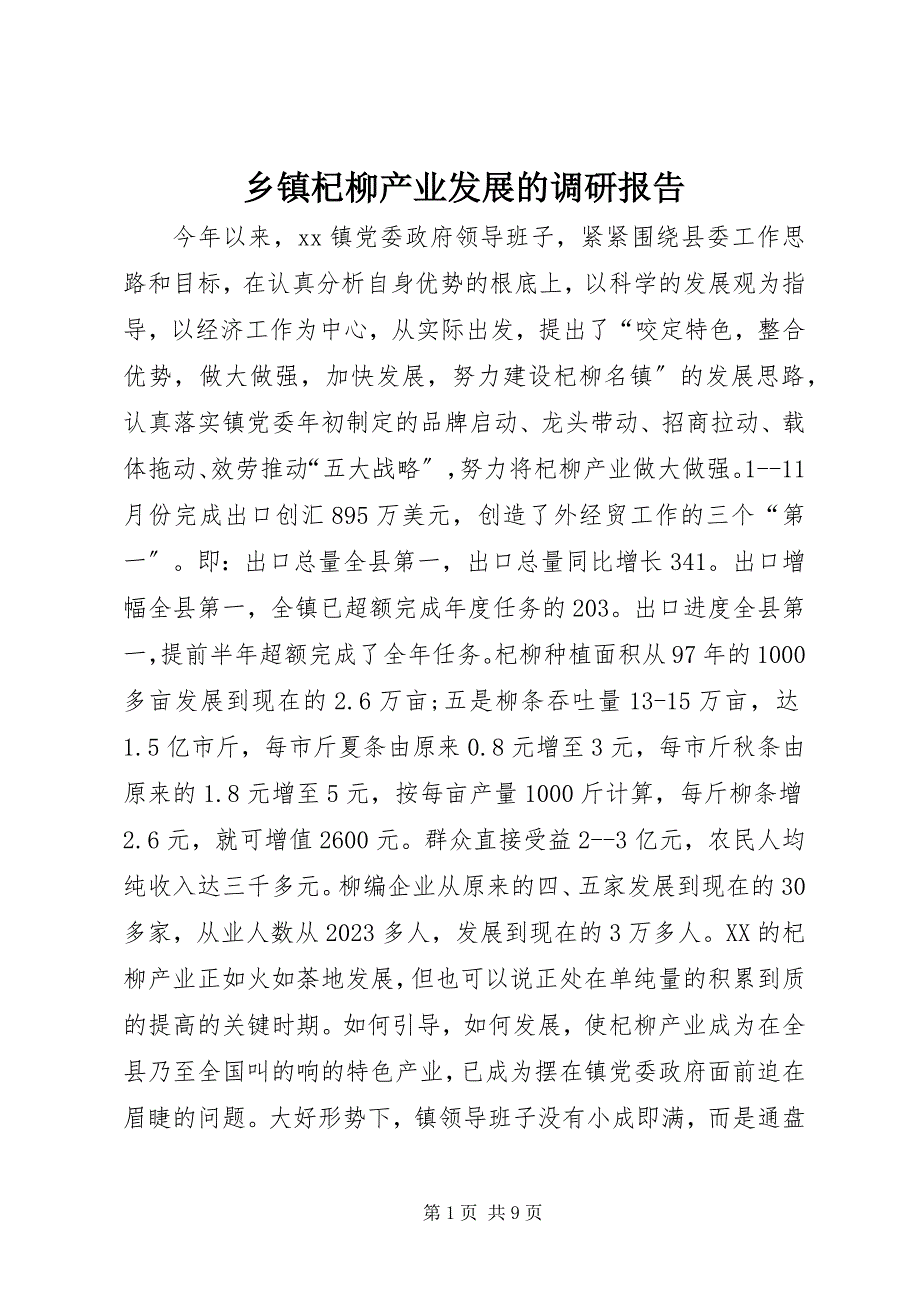 乡镇杞柳产业发展的调研报告
今年以来，xx 镇党委政府领导班子，紧紧围绕县委工作思
路和目标，在认真分析自身优势的根底上，以科学的发展观为指
导，以经济工作为中心，从实际出发，提出了“咬定特色，整合
优势，做大做强，加快发展，努力建设杞柳名镇〞的发展思路，
认真落实镇党委年初制定的品牌启动、龙头带动、招商拉动、载
体拖动、效劳推动“五大战略〞,努力将杞柳产业做大做强。1--11
月份完成出口创汇 895 万美元，创造了外经贸工作的三个“第
一〞。即：出口总量全县第一，出口总量同比增长 341。出口增
幅全县第一，全镇已超额完成年度任务的 203。出口进度全县第
一,提前半年超额完成了全年任务。杞柳种植面积从 97 年的 1000
多亩发展到现在的 2.6 万亩;五是柳条吞吐量 13-15 万亩，达
1.5 亿市斤，每市斤夏条由原来 0.8 元增至 3 元，每市斤秋条由
原来的 1.8 元增至 5 元，按每亩产量 1000 斤计算，每斤柳条增
2.6 元，就可增值 2600 元。群众直接受益 2--3 亿元，农民人均
纯收入达三千多元。柳编企业从原来的四、五家发展到现在的 30
多家，从业人数从 2023 多人，发展到现在的 3 万多人。XX 的杞
柳产业正如火如茶地发展，但也可以说正处在单纯量的积累到质
的提高的关键时期。如何引导，如何发展，使杞柳产业成为在全
县乃至全国叫的响的特色产业，已成为摆在镇党委政府面前迫在
眉睫的问题。大好形势下，镇领导班子没有小成即满，而是通盘
第 1 页 共 9 页